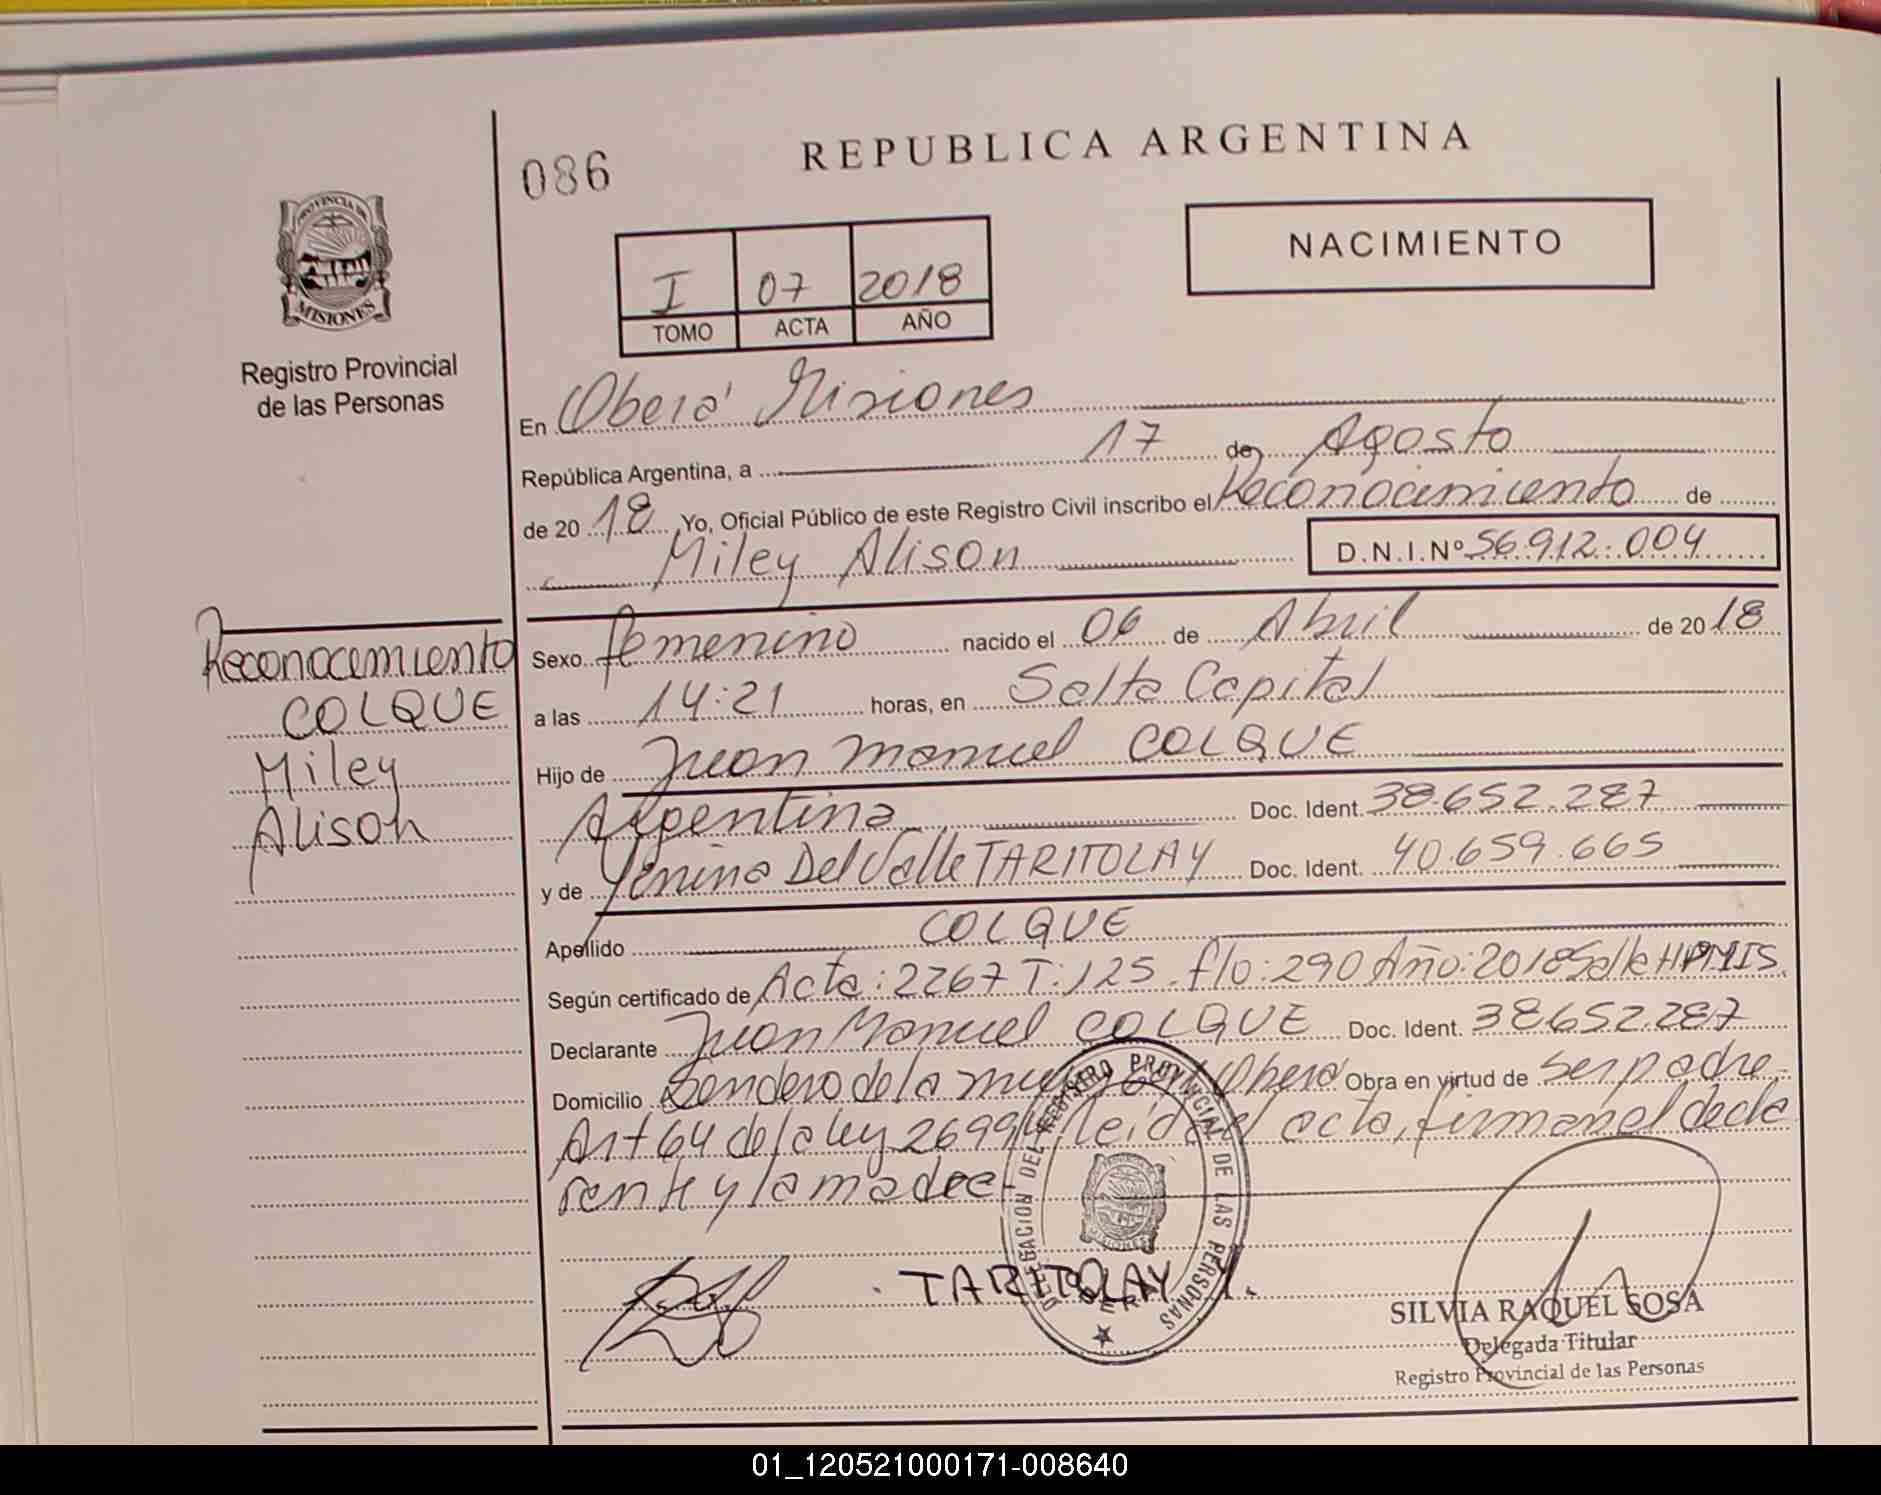 086
REPUBLICA ARGENTINA
PROVINCIA DE
MISIONES
Registro Provincial
de las Personas
NACIMIENTO
I 07 2018
TOMO ACTA AÑO
En Oberá Misiones
República Argentina, a 17 de Agosto
de 2018 Yo, Oficial Público de este Registro Civil inscribo el Reconocimiento de
Miley Alison D.N.I.Nº 56.912.004
Reconocimiento
COLQUE
Miley
Alison
Sexo femenino nacido el 06 de Abril de 2018
a las 14:21 horas, en Salta Capital
Hijo de Juan Manuel COLQUE
Argentina Doc. Ident. 38.652.287
y de Yenina Del Valle TARITOLAY Doc. Ident. 40.659.665
Apellido COLQUE
Según certificado de Acta: 2267 T: 125. flo: 290 Año: 2018 Salta
Declarante Juan Manuel COLQUE Doc. Ident. 38652.287
Domicilio Sendero de la Oberá Obra en virtud de ser padre
Art 64 de la ley 26994. leida el acta, firman el decla
rante y la madre
DELEGACION DEL REGISTRO PROVINCIAL DE LAS PERSONAS
TARITOLAY Y.
SILVIA RAQUEL SOSA
Delegada Titular
Registro Provincial de las Personas
01_120521000171-008640